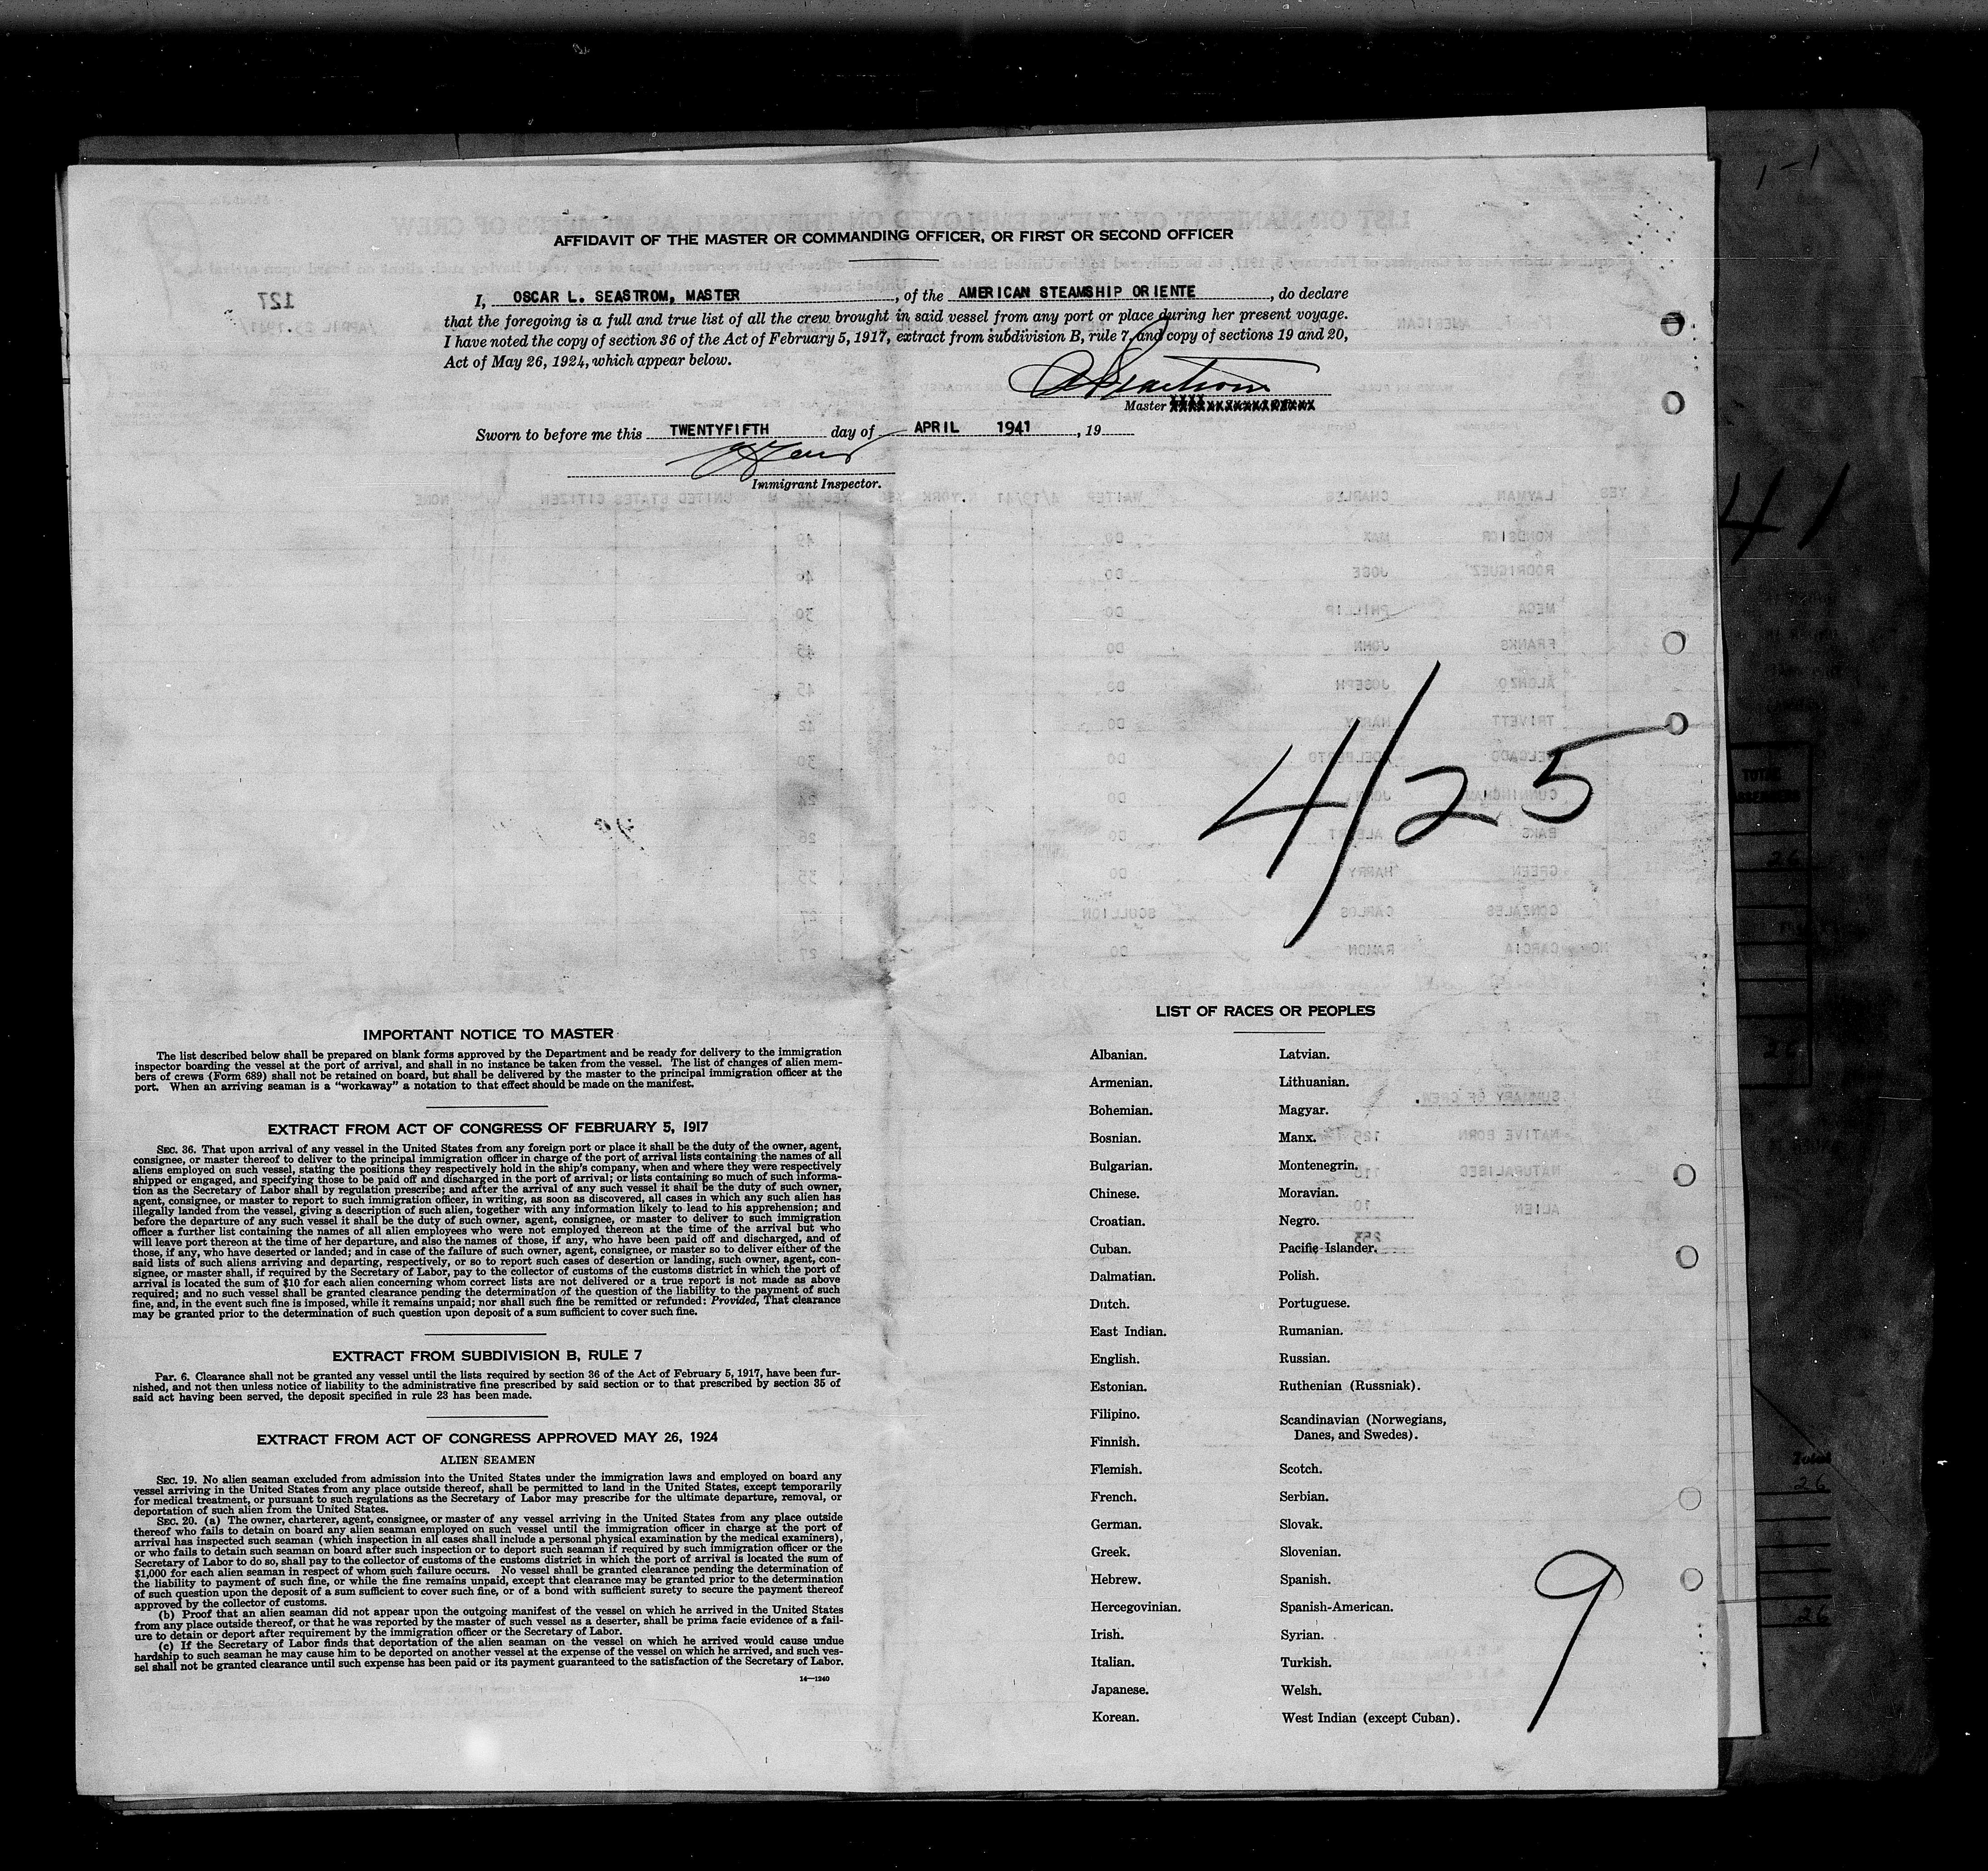 AFFIDAVIT OF THE MASTER OR COMMANDING OFFICER, OR FIRST OR SECOND OFFICER
I, OSCAR L. SEASTROM, MASTER, of the AMERICAN STEAMSHIP ORIENTE, do declare
that the foregoing is a full and true list of all the crew brought in said vessel from any port or place during her present voyage.
I have noted the copy of section 36 of the Act of February 5, 1917, extract from subdivision B, rule 7, and copy of sections 19 and 20,
Act of May 26, 1924, which appear below.
Master
Sworn to before me this TWENTYFIFTH day of APRIL 1941, 19
Immigrant Inspector.
41
4/25
IMPORTANT NOTICE TO MASTER
The list described below shall be prepared on blank forms approved by the Department and be ready for delivery to the immigration
inspector boarding the vessel at the port of arrival, and shall in no instance be taken from the vessel. The list of changes of alien mem-
bers of crews (Form 689) shall not be retained on board, but shall be delivered by the master to the principal immigration officer at the
port. When an arriving seaman is a "workaway" a notation to that effect should be made on the manifest.
EXTRACT FROM ACT OF CONGRESS OF FEBRUARY 5, 1917
SEC. 36. That upon arrival of any vessel in the United States from any foreign port or place it shall be the duty of the owner, agent,
consignee, or master thereof to deliver to the principal immigration officer in charge of the port of arrival lists containing the names of all
aliens employed on such vessel, stating the positions they respectively hold in the ship's company, when and where they were respectively
shipped or engaged, and specifying those to be paid off and discharged in the port of arrival; or lists containing so much of such informa-
tion as the Secretary of Labor shall by regulation prescribe; and after the arrival of any such vessel it shall be the duty of such owner,
agent, consignee, or master to report to such immigration officer, in writing, as soon as discovered, all cases in which any such alien has
illegally landed from the vessel, giving a description of such alien, together with any information likely to lead to his apprehension; and
before the departure of any such vessel it shall be the duty of such owner, agent, consignee, or master to deliver to such immigration
officer a further list containing the names of all alien employees who were not employed thereon at the time of the arrival but who
will leave port thereon at the time of her departure, and also the names of those, if any, who have been paid off and discharged, and of
those, if any, who have deserted or landed; and in case of the failure of such owner, agent, consignee, or master so to deliver either of the
said lists of such aliens arriving and departing, respectively, or so to report such cases of desertion or landing, such owner, agent, con-
signee, or master shall, if required by the Secretary of Labor, pay to the collector of customs of the customs district in which the port of
arrival is located the sum of $10 for each alien concerning whom correct lists are not delivered or a true report is not made as above
required; and no such vessel shall be granted clearance pending the determination of the question of the liability to the payment of such
fine, and, in the event such fine is imposed, while it remains unpaid; nor shall such fine be remitted or refunded: Provided, That clearance
may be granted prior to the determination of such question upon deposit of a sum sufficient to cover such fine.
EXTRACT FROM SUBDIVISION B, RULE 7
Par. 6. Clearance shall not be granted any vessel until the lists required by section 36 of the Act of February 5, 1917, have been fur-
nished, and not then unless notice of liability to the administrative fine prescribed by said section or to that prescribed by section 35 of
said act having been served, the deposit specified in rule 23 has been made.
EXTRACT FROM ACT OF CONGRESS APPROVED MAY 26, 1924
ALIEN SEAMEN
SEC. 19. No alien seaman excluded from admission into the United States under the immigration laws and employed on board any
vessel arriving in the United States from any place outside thereof, shall be permitted to land in the United States, except temporarily
for medical treatment, or pursuant to such regulations as the Secretary of Labor may prescribe for the ultimate departure, removal, or
deportation of such alien from the United States.
SEC. 20. (a) The owner, charterer, agent, consignee, or master of any vessel arriving in the United States from any place outside
thereof who fails to detain on board any alien seaman employed on such vessel until the immigration officer in charge at the port of
arrival has inspected such seaman (which inspection in all cases shall include a personal physical examination by the medical examiners),
or who fails to detain such seaman on board after such inspection or to deport such seaman if required by such immigration officer or the
Secretary of Labor to do so, shall pay to the collector of customs of the customs district in which the port of arrival is located the sum of
$1,000 for each alien seaman in respect of whom such failure occurs. No vessel shall be granted clearance pending the determination of
the liability to payment of such fine, or while the fine remains unpaid, except that clearance may be granted prior to the determination
of such question upon the deposit of a sum sufficient to cover such fine, or of a bond with sufficient surety to secure the payment thereof
approved by the collector of customs.
(b) Proof that an alien seaman did not appear upon the outgoing manifest of the vessel on which he arrived in the United States
from any place outside thereof, or that he was reported by the master of such vessel as a deserter, shall be prima facie evidence of a fail-
ure to detain or deport after requirement by the immigration officer or the Secretary of Labor.
(c) If the Secretary of Labor finds that deportation of the alien seaman on the vessel on which he arrived would cause undue
hardship to such seaman he may cause him to be deported on another vessel at the expense of the vessel on which he arrived, and such ves-
sel shall not be granted clearance until such expense has been paid or its payment guaranteed to the satisfaction of the Secretary of Labor.
14—1240
LIST OF RACES OR PEOPLES
Albanian.
Armenian.
Bohemian.
Bosnian.
Bulgarian.
Chinese.
Croatian.
Cuban.
Dalmatian.
Dutch.
East Indian.
English.
Estonian.
Filipino.
Finnish.
Flemish.
French.
German.
Greek.
Hebrew.
Hercegovinian.
Irish.
Italian.
Japanese.
Korean.
Latvian.
Lithuanian.
Magyar.
Manx.
Montenegrin.
Moravian.
Negro.
Pacific Islander.
Polish.
Portuguese.
Rumanian.
Russian.
Ruthenian (Russniak).
Scandinavian (Norwegians,
Danes, and Swedes).
Scotch.
Serbian.
Slovak.
Slovenian.
Spanish.
Spanish-American.
Syrian.
Turkish.
Welsh.
West Indian (except Cuban).
9
Total
26
26